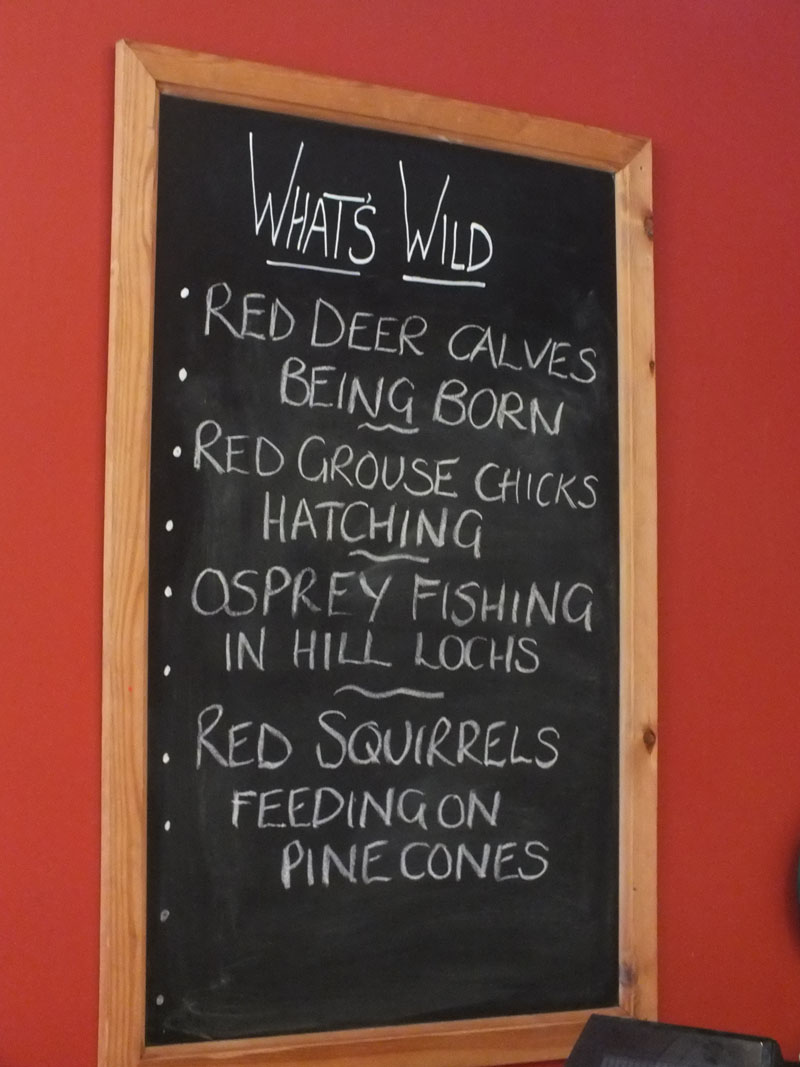 WHAT'S WILD
• RED DEER CALVES
• BEING BORN
• RED GROUSE CHICKS
• HATCHING
• OSPREY FISHING
• IN HILL LOCHS
• RED SQUIRRELS
• FEEDING ON
PINE CONES